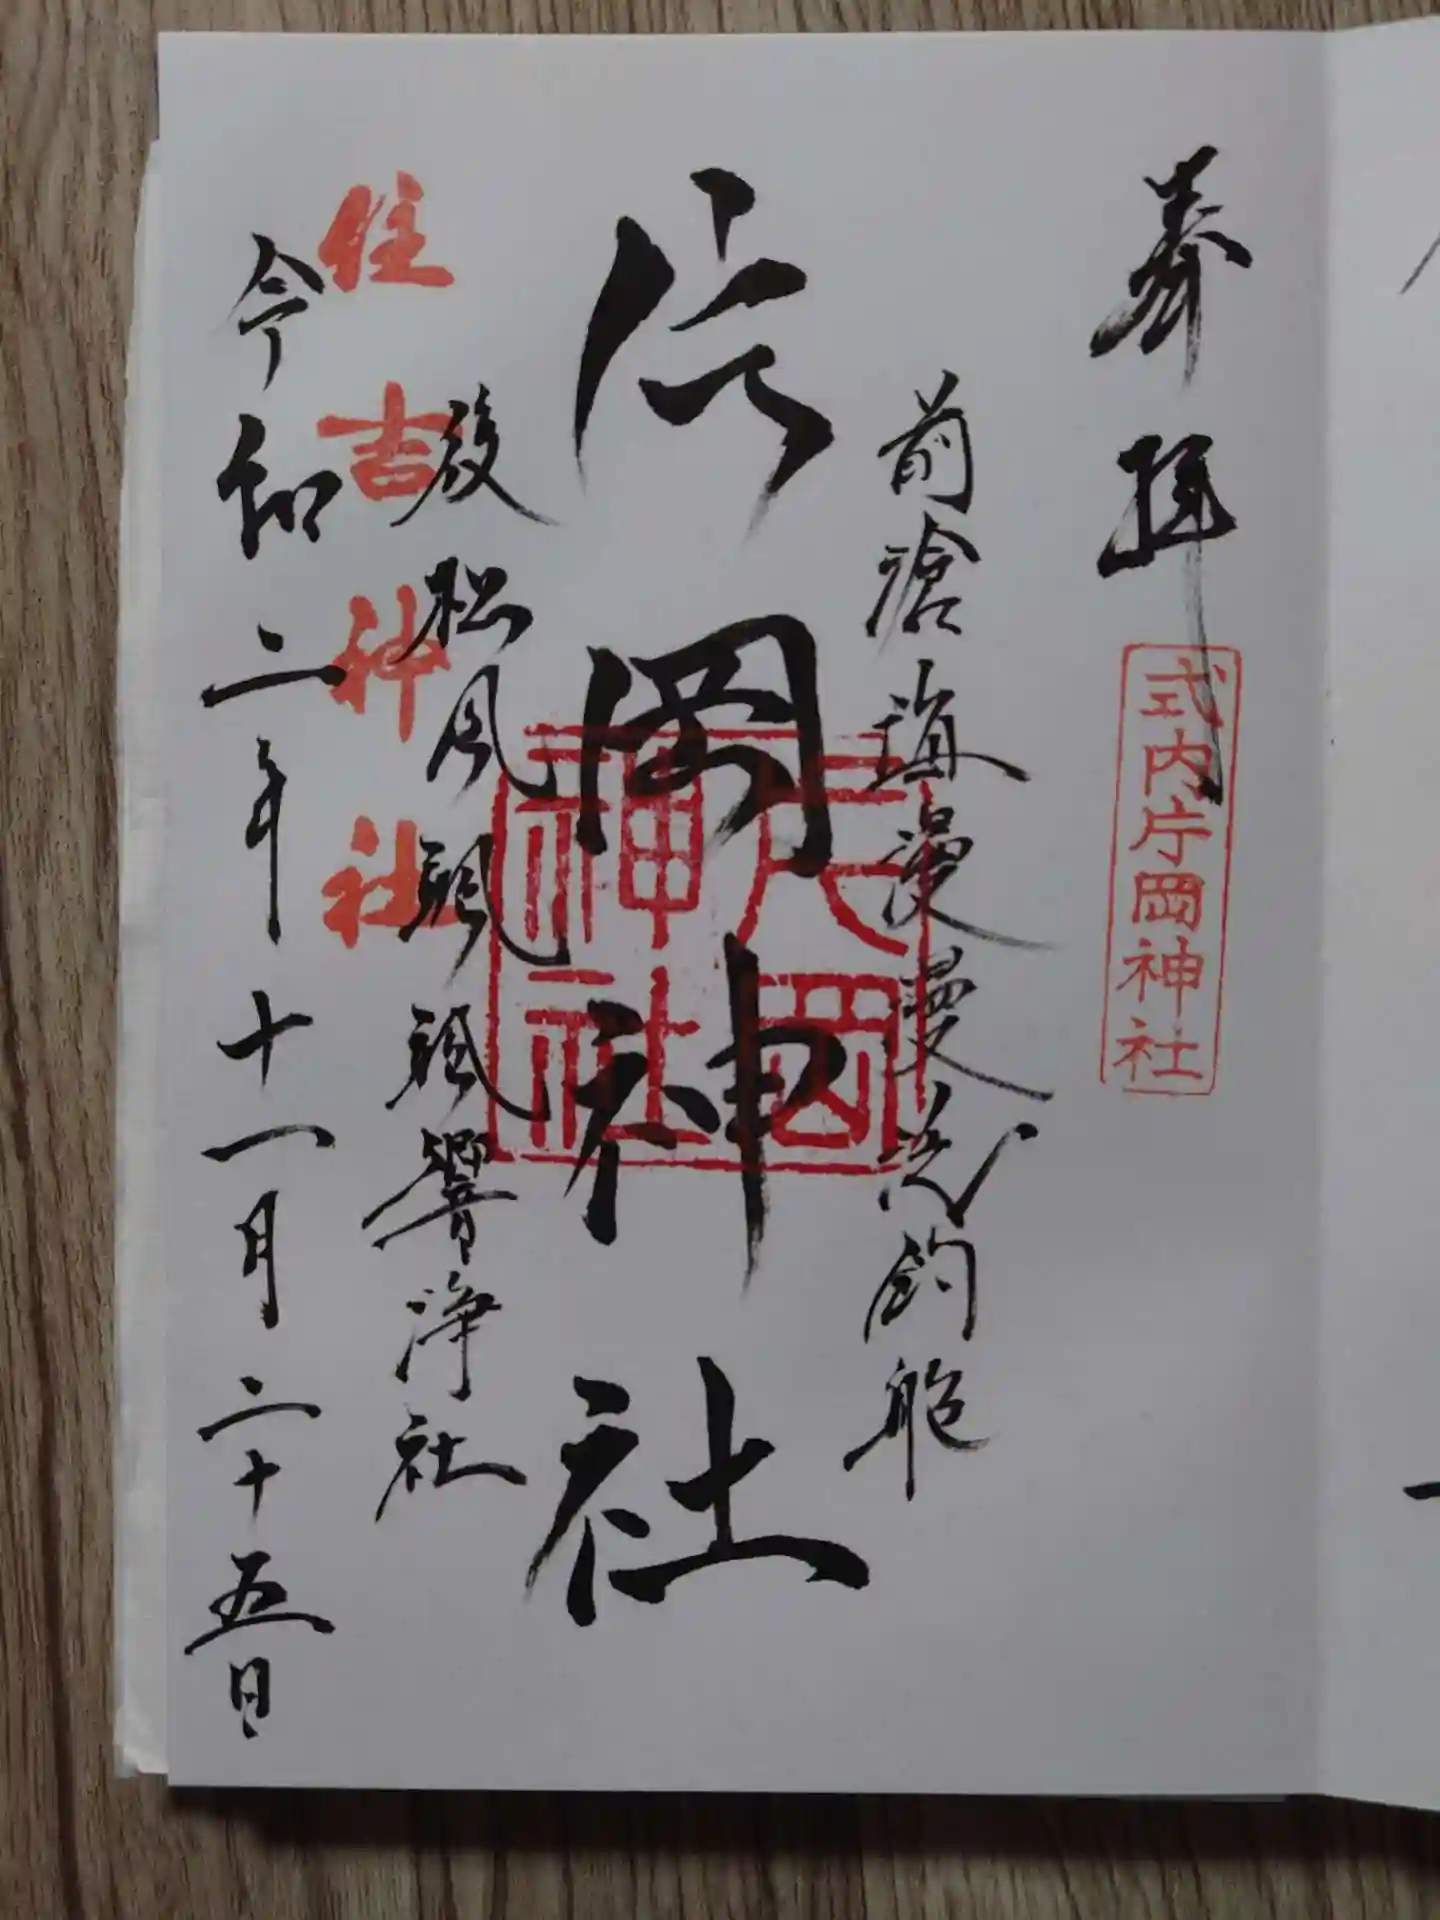 奉拝
式内片岡神社
前滄海漫漫釣船
片岡神社
片岡神社
後松風颯颯響浄社
住吉神社
令和二年十一月二十五日